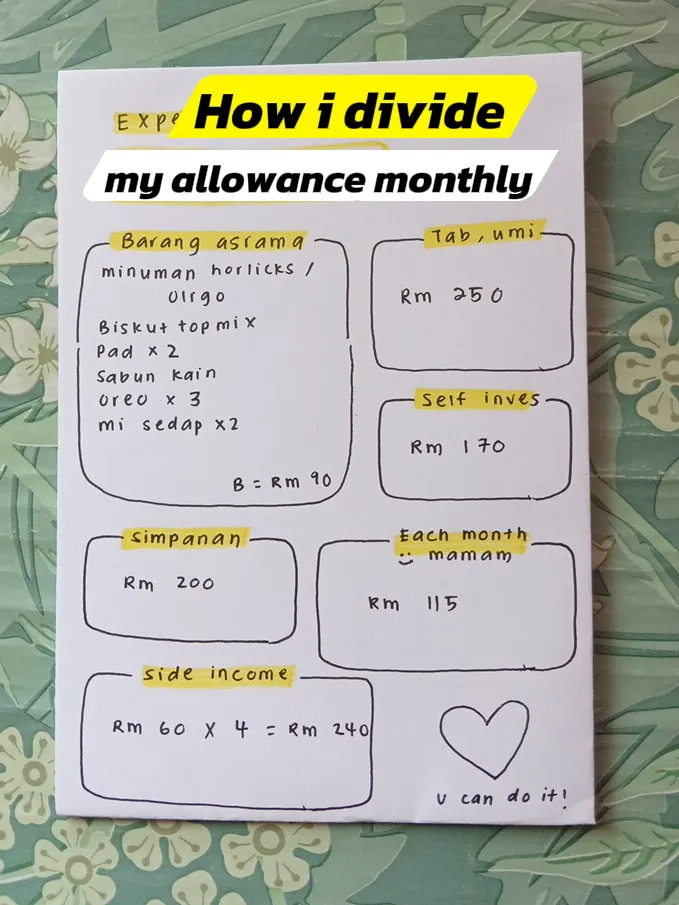 How i divide
my allowance monthly
Barang asrama
minuman horlicks /
oligo
Biskut topmix
Pad x 2
Sabun kain
oreo x 3
mi sedap x2
B = Rm 90
Tab, umi
Rm 250
Self inves
Rm 170
Simpanan
Rm 200
Each month
mamam
Rm 115
Side income
Rm 60 x 4 = Rm 240
u can do it!